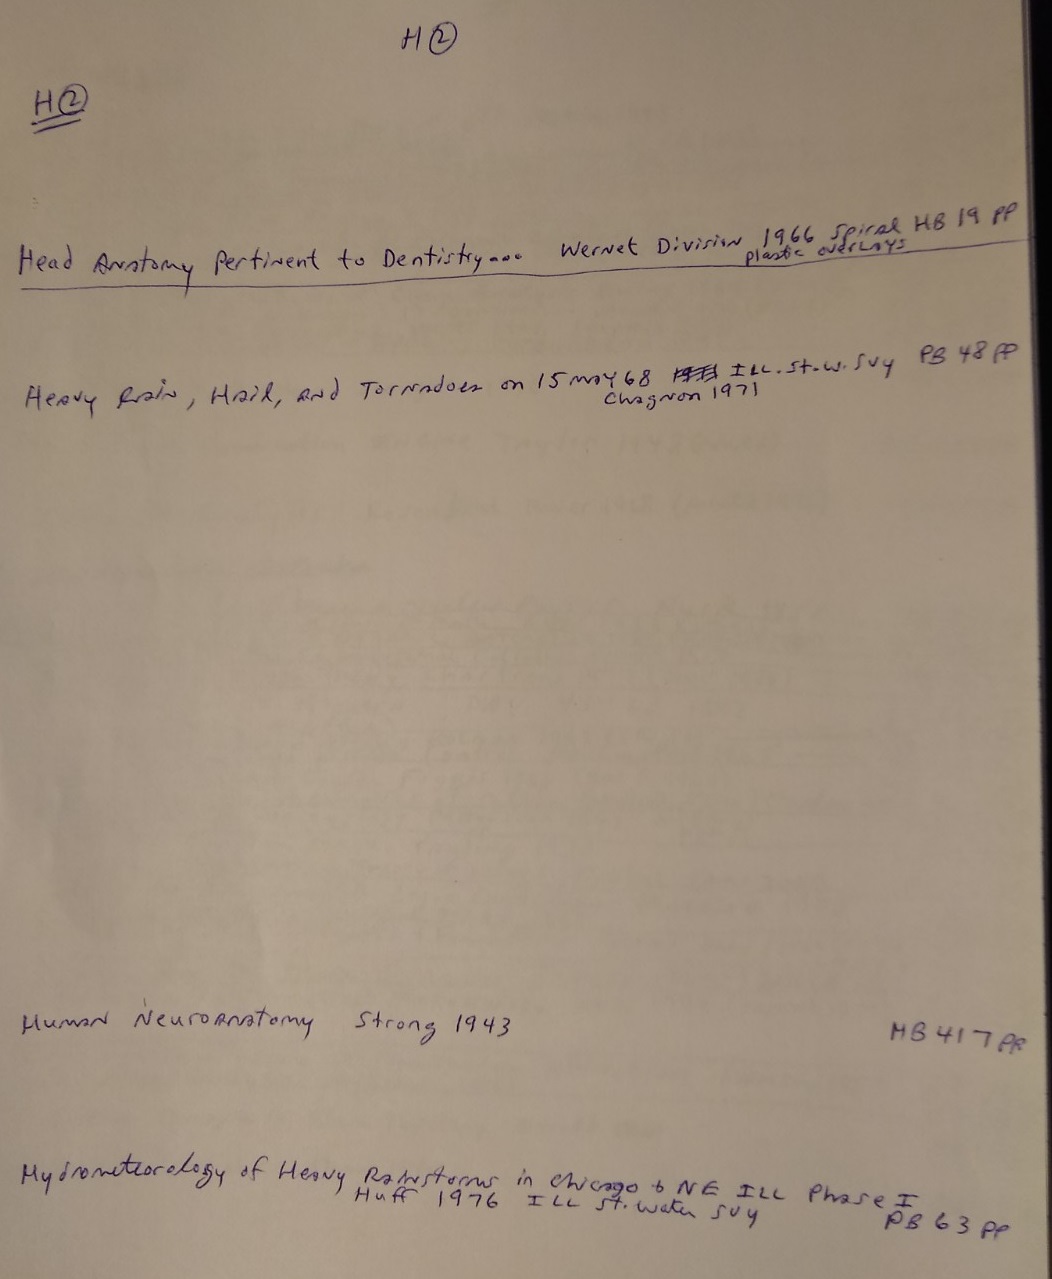 H②
H②
Head Anatomy Pertinent to Dentistry... Wernet Division 1966 Spiral HB 19 PP
plastic overlays
Heavy Rain, Hail, and Tornadoes on 15 may 68 ILL. St. W. Svy PB 48 PP
Chagnon 1971
Human Neuroanatomy Strong 1943 HB 417 PP
Hydrometeorology of Heavy Rainstorms in Chicago & NE ILL Phase I
Huff 1976 ILL St. Water Svy PB 63 PP